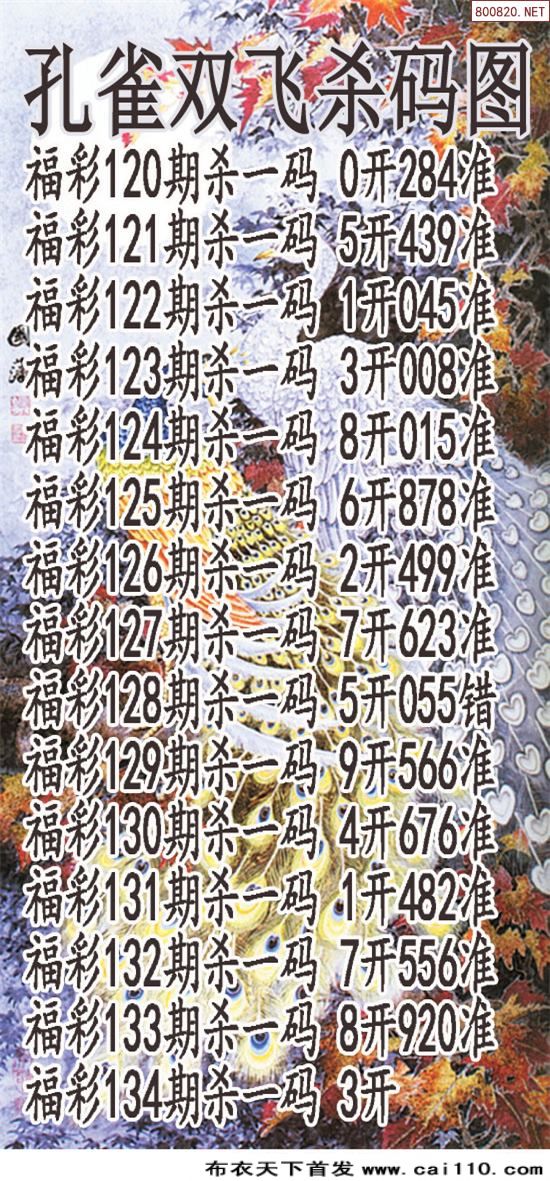 800820.NET
孔雀双飞杀码图
福彩120期杀一码 0开284准
福彩121期杀一码 5开439准
福彩122期杀一码 1开045准
福彩123期杀一码 3开008准
福彩124期杀一码 8开015准
福彩125期杀一码 6开878准
福彩126期杀一码 2开499准
福彩127期杀一码 7开623准
福彩128期杀一码 5开055错
福彩129期杀一码 9开566准
福彩130期杀一码 4开676准
福彩131期杀一码 1开482准
福彩132期杀一码 7开556准
福彩133期杀一码 8开920准
福彩134期杀一码 3开
布衣天下首发 www.cai110.com